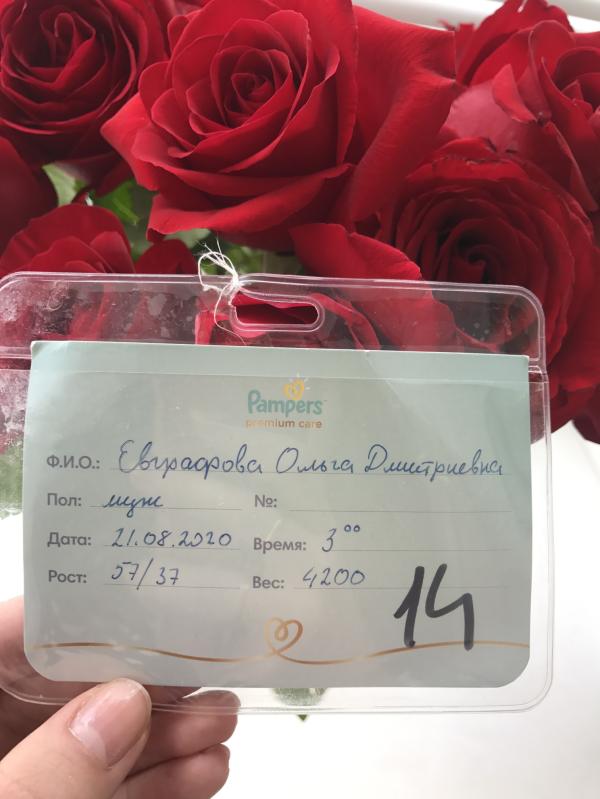 Pampers
premium care
Ф.И.О.: Евграфова Ольга Дмитриевна
Пол: муж №:
Дата: 21.08.2020 Время: 3⁰⁰
Рост: 57/37 Вес: 4200
14